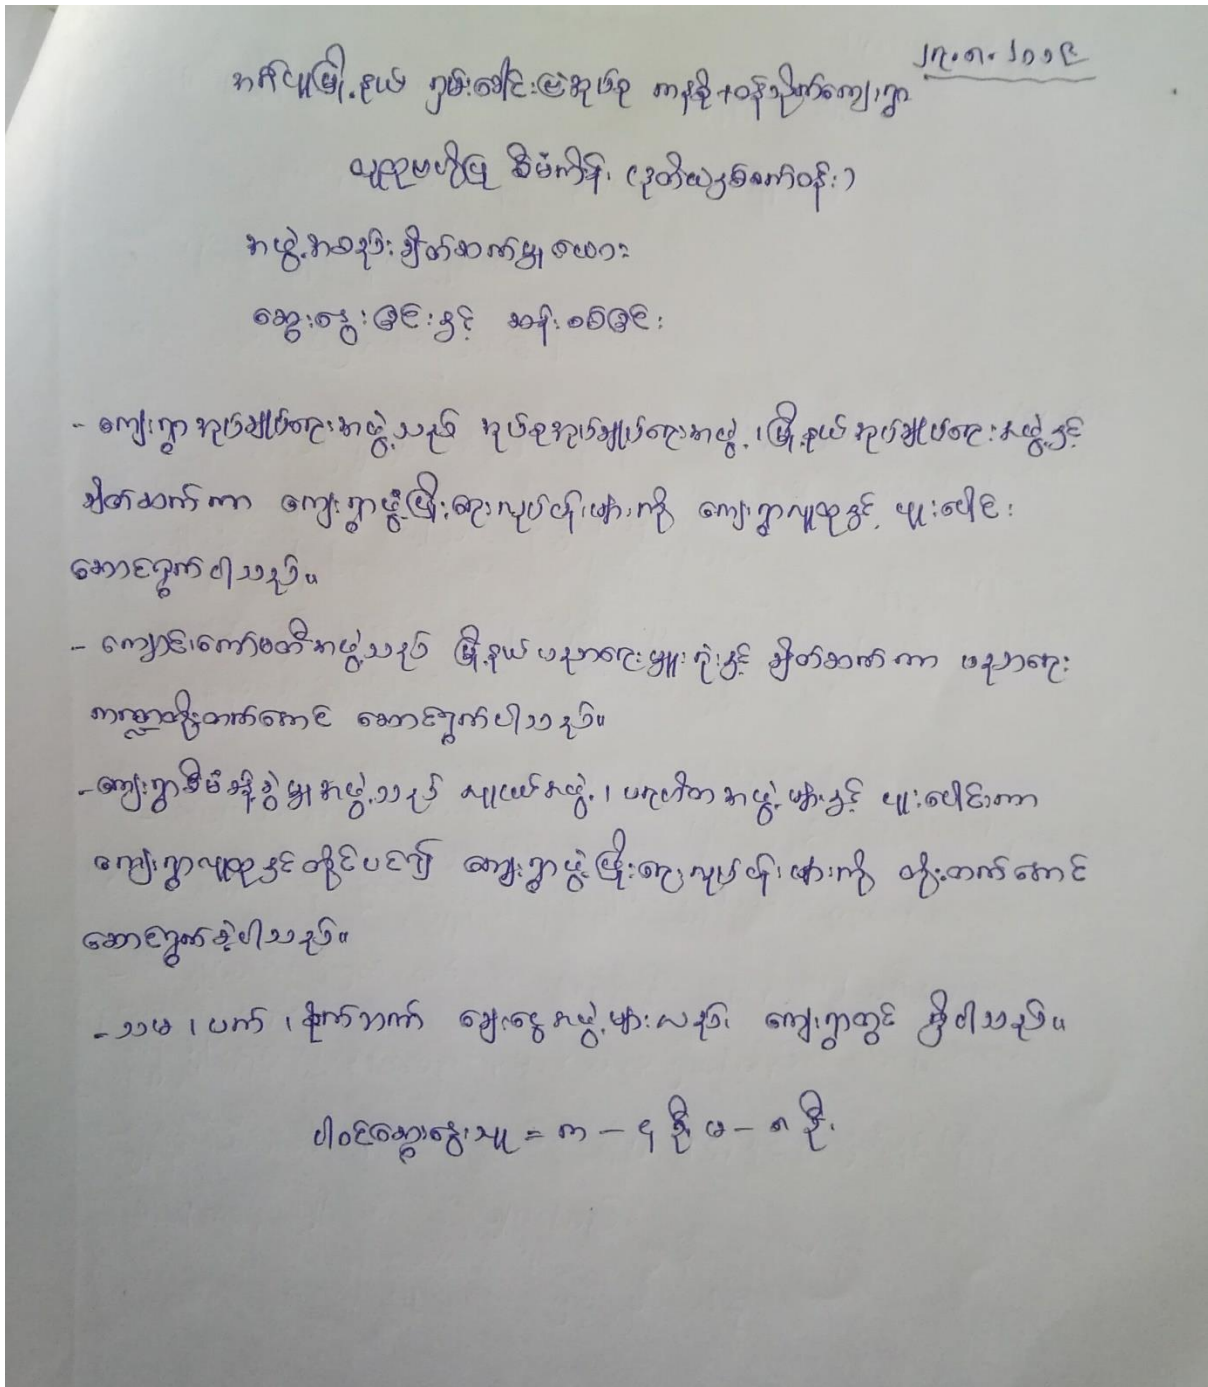 ၂၉.၈.၂၀၁၉
အင်္ဂပူမြို့နယ် ရှမ်းခေါင်းမြဲအုပ်စု ကနစိုး+ဝန်သိုက်ကျေးရွာ
လူထုဗဟိုပြု စီမံကိန်း (ဒုတိယနှစ်စက်ဝန်း)
အဖွဲ့အစည်းချိတ်ဆက်မှုဇယား
ဆွေးနွေးခြင်းနှင့် ဆန်းစစ်ခြင်း
- ကျေးရွာအုပ်ချုပ်ရေးအဖွဲ့သည် အုပ်စုအုပ်ချုပ်ရေးအဖွဲ့၊ မြို့နယ်အုပ်ချုပ်ရေးအဖွဲ့နှင့်
ချိတ်ဆက်ကာ ကျေးရွာဖွံ့ဖြိုးရေးလုပ်ငန်းများကို ကျေးရွာလူထုနှင့် ပူးပေါင်း
ဆောင်ရွက်ပါသည်။
- ကျောင်းကော်မတီအဖွဲ့သည် မြို့နယ်ပညာရေးမှူးရုံးနှင့် ချိတ်ဆက်ကာ ပညာရေး
ကဏ္ဍတိုးတက်အောင် ဆောင်ရွက်ပါသည်။
- ကျေးရွာစီမံခန့်ခွဲမှုအဖွဲ့သည် လူငယ်အဖွဲ့၊ ပရဟိတအဖွဲ့များနှင့် ပူးပေါင်းကာ
ကျေးရွာလူထုနှင့်တိုင်ပင်၍ ကျေးရွာဖွံ့ဖြိုးရေးလုပ်ငန်းများကို တိုးတက်အောင်
ဆောင်ရွက်ခဲ့ပါသည်။
- သမ၊ ပက်၊ စိုက်ဘဏ် ချေးငွေအဖွဲ့များလည်း ကျေးရွာတွင် ရှိပါသည်။
ပါဝင်ဆွေးနွေးသူ = က – ၄ ဦး မ – ၈ ဦး